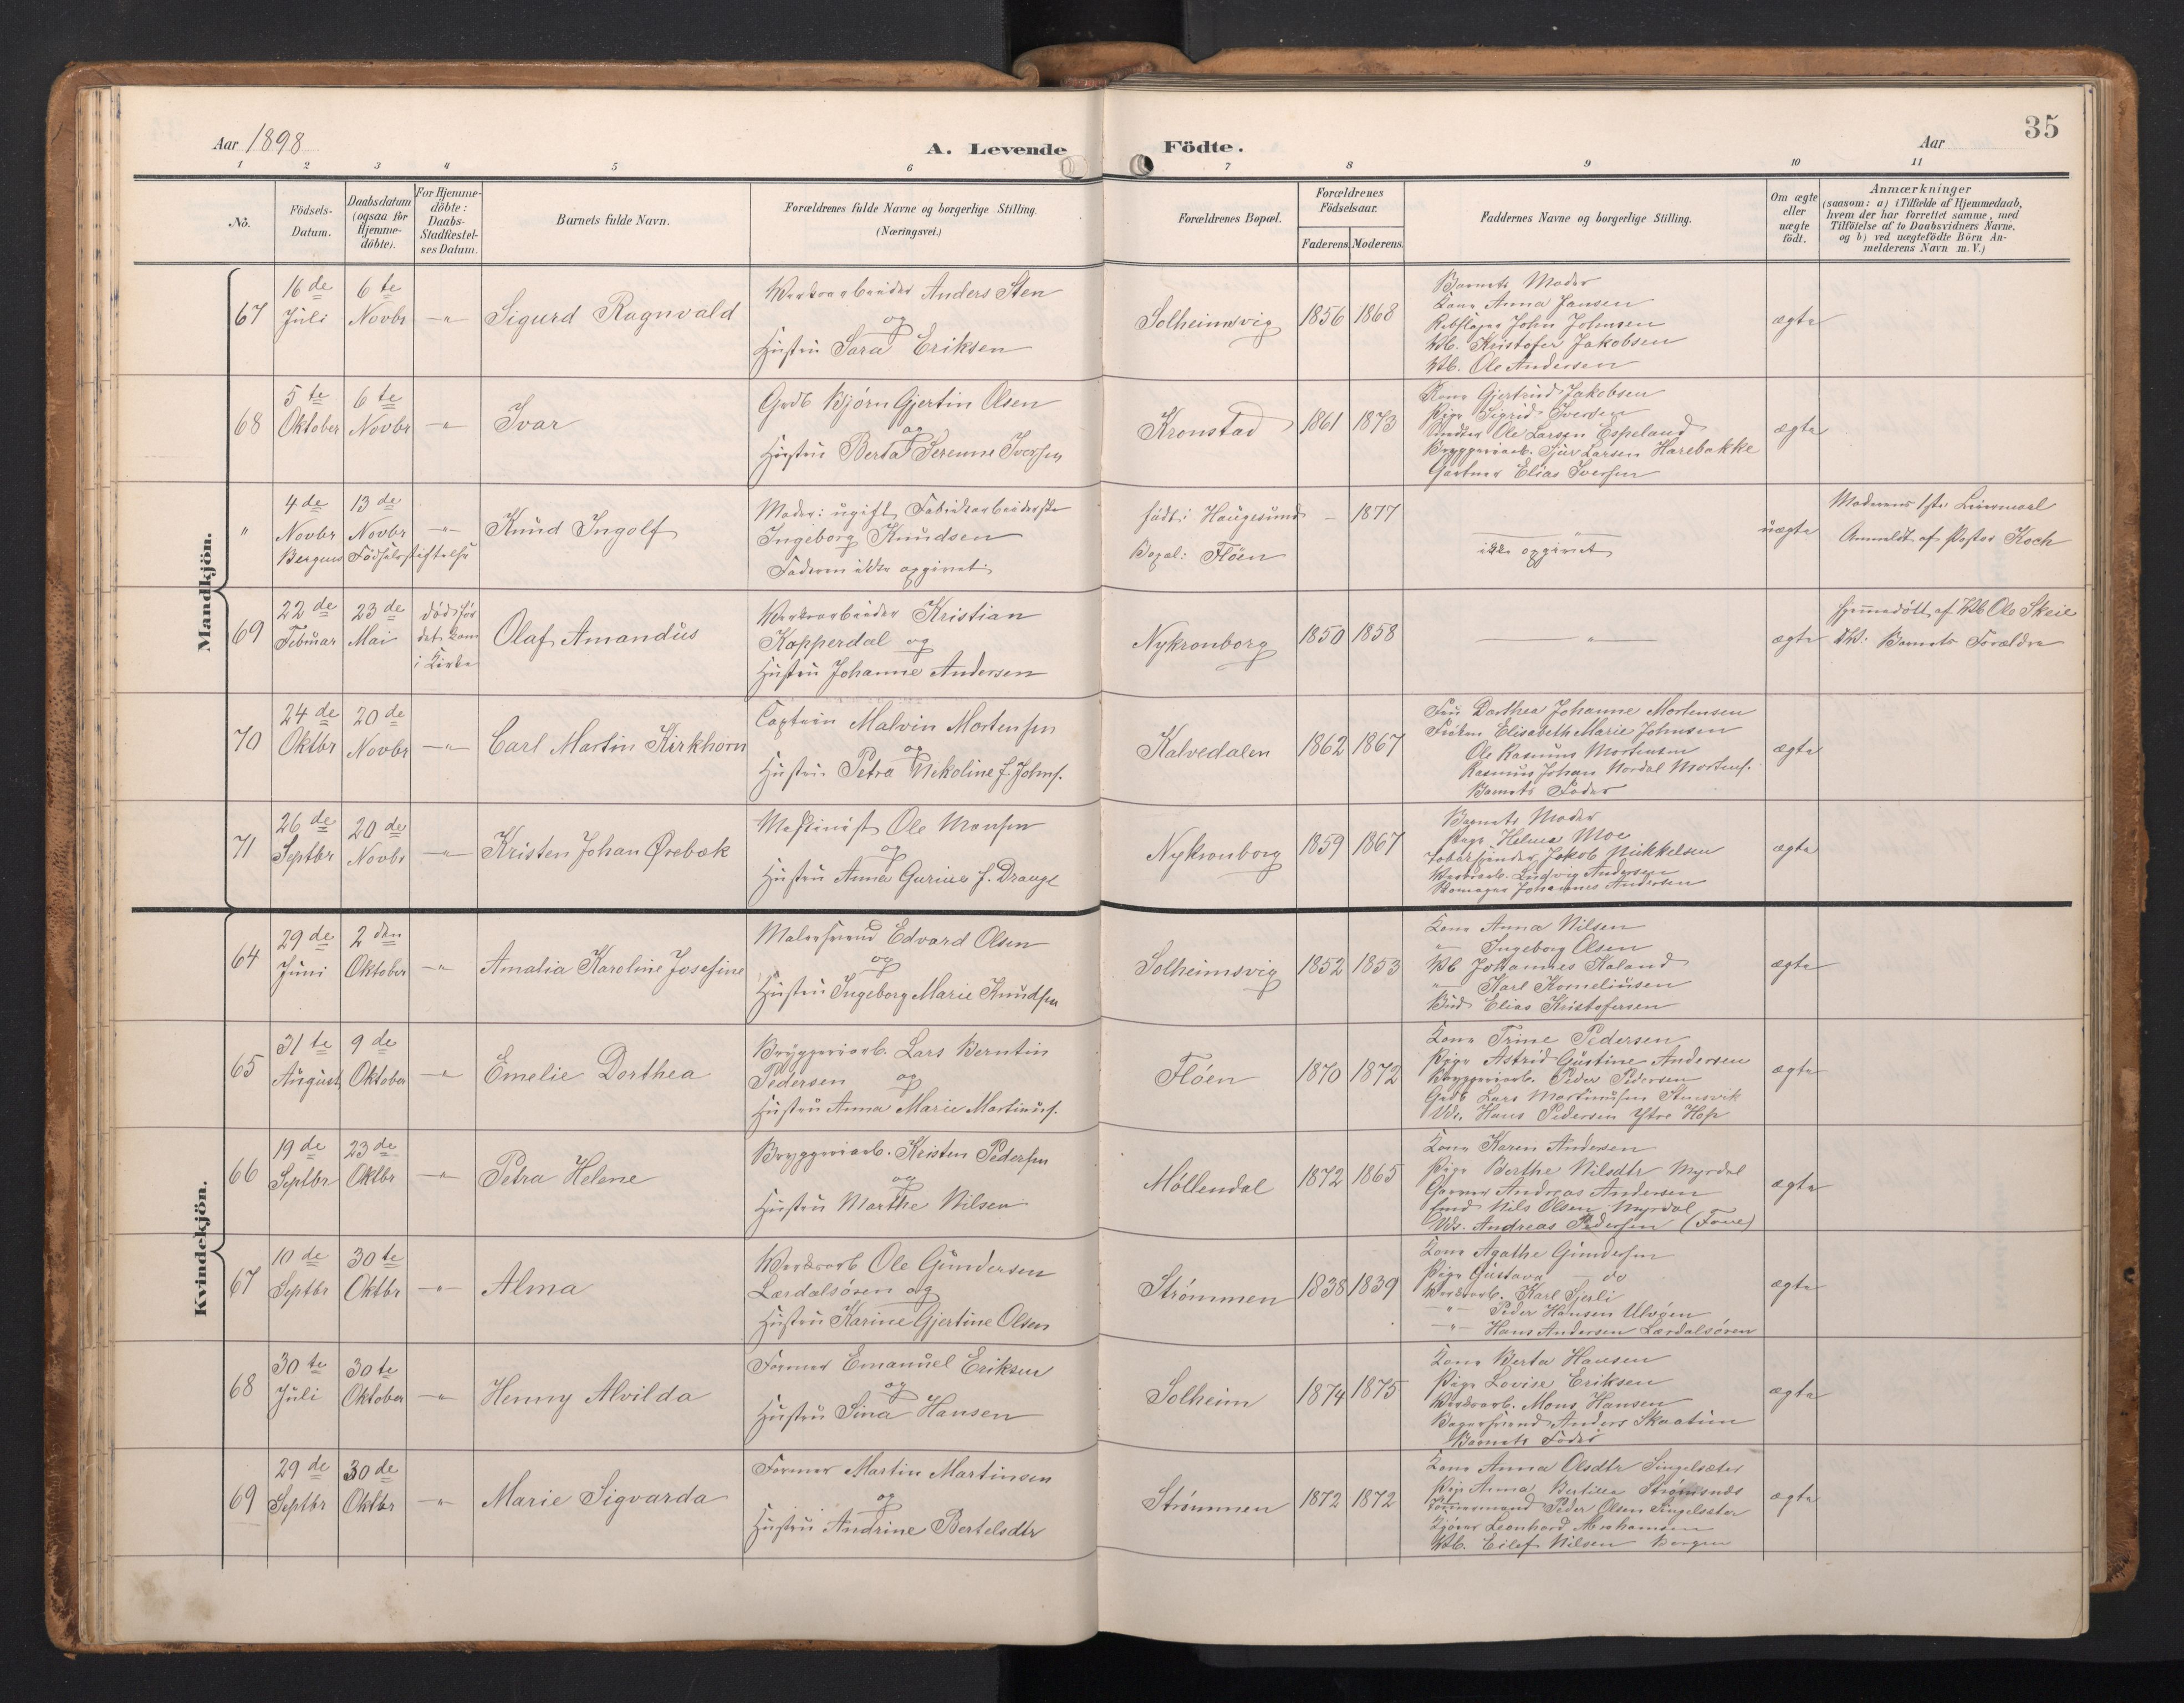 35
Aar 1898
A. Levende
Födte.
Aar
1 2 3 4 5 6
7 8 9 10 11
No.
Födsels-
Datum.
Daabsdatum
(ogsaa for
Hjemme-
döbte).
For Hjemme-
döbte:
Daabs-
Stadfæstel-
ses Datum.
Barnets fulde Navn.
Forældrenes fulde Navne og borgerlige Stilling.
(Næringsvei.)
Forældrenes Bopæl.
Forældrenes
Födselsaar.
Faderens. Moderens.
Faddernes Navne og borgerlige Stilling.
Om ægte
eller
uægte
födt.
Anmærkninger
(saasom: a) i Tilfælde af Hjemmedaab,
hvem der har forrettet samme, med
Tilföielse af to Daabsvidners Navne,
og b) ved uægtefödte Börn An-
melderens Navn m.V.)
Mandkjön.
67
16 de
Juli
6 te
Novbr
-"-
Sigurd Ragnvald
Værksarbeider Anders Sten
og
Hustru Sara Eriksen
Solheimsvig
1856 1868
Barnets Moder
Kone Anna Jansen
Rebslager John Johnsen
Wb. Kristofer Jakobsen
Wb. Ole Andersen
ægte
68
5 te
Oktober
6 te
Novbr
-"-
Ivar
Grdb Bjørn Gjertin Olsen
og
Hustru Berta Serenne Iversen
Kronstad
1861 1873
Kone Gjertrud Jakobsen
Pige Sigrid Iversen
Ole Larsen Espeland
Bryggeriarb. Sjur Larsen Harebakke
Gartner Elias Iversen
ægte
"
4 de
Novbr
13 de
Novbr
-"-
Bergens Födselsstiftelse
Knud Ingolf
Moder: ugift Fabrikarbeiderske
Ingeborg Knudsen
Faderen ikke opgivet.
født i Haugesund
Bopæl: Flöen
- 1877
"
ikke opgivet
uægte
Moderens 1ste Leiermaal
Anmeldt af Pastor Koch
69
22 de
Februar
23 de
Mai
død før
det kom
i Kirke
Olaf Amandus
Værksarbeider Kristian
Kopperdal og
Hustru Johanne Andersen
Nykronborg
1850 1858
"
ægte
Hjemmedøbt af Wb Ole Skeie
Barnets Forældre
70
24 de
Oktbr
20 de
Novbr
-"-
Carl Martin Kirkhorn
Captein Malvin Mortensen
og
Hustru Petra Nekoline f. Johns.
Kalvedalen
1862 1867
Fru Dorthea Johanne Mortensen
Frøken Elisabeth Marie Johnsen
Ole Rasmus Mortensen
Rasmus Johan Nordal Mortens.
Barnets Fader
ægte
71
26 de
Septbr
20 de
Novbr
-"-
Kristen Johan Ørebæk
Maskinist Ole Monsen
og
Hustru Anna Gurine f. Drange
Nykronborg
1859 1867
Barnets Moder
Pige Helma Moe
Jakob Mikkelsen
Ludvig Andersen
Johannes Andersen
ægte
Kvindekjön.
64
29 de
Juni
2 den
Oktober
-"-
Amalia Karoline Josefine
Malersvend Edvard Olsen
og
Hustru Ingeborg Marie Knudsen
Solheimsvig
1852 1853
Kone Anna Nilsen
-"- Ingeborg Olsen
Wb Johannes Kaland
-"- Karl Korneliusen
Bud Elias Kristofersen
ægte
65
31 te
August
9 de
Oktober
-"-
Emelie Dorthea
Bryggeriarb. Lars Berntin
Pedersen og
Hustru Anna Marie Martinus.
Flöen
1870 1872
Kone Trine Pedersen
Pige Astrid Gustine Andersen
Bryggeriarb. Peder Pedersen
Grdb Lars Martinusen Stensvik
Hans Pedersen Ytre Hop
ægte
66
19 de
Septbr
23 de
Oktbr
-"-
Petra Helene
Bryggeriarb. Kristen Pedersen
og
Hustru Marthe Nilsen
Möllendal
1872 1865
Kone Karen Andersen
Pige Berthe Nilsdtr Myrdal
Garver Andreas Andersen
Nils Olsen Myrdal
Andreas Pedersen
ægte
67
10 de
Septbr
30 te
Oktbr
-"-
Alma
Værksarb Ole Gundersen
Lærdalsören og
Hustru Karine Gjertine Olsen
Strömmen
1838 1839
Kone Agathe Gundersen
Pige Gustava do
Værksarb. Karl Sjerli
-"- Peder Hansen Ulvöen
-"- Hans Andersen Lærdalsören
ægte
68
30 te
Juli
30 te
Oktober
-"-
Henny Alvilda
Former Emanuel Eriksen
og
Hustru Sina Hansen
Solheim
1874 1875
Kone Berta Hansen
Pige Lovise Eriksen
Værksarb. Mons Hansen
Bagersvend Anders Skaatun
Barnets Fader
ægte
69
29 de
Septbr
30 de
Oktbr
-"-
Marie Sigvarda
Former Martin Martinsen
og
Hustru Andrine Bertelsdtr
Strömmen
1872 1872
Kone Anna Olsdtr Singelsæter
Pige Anna Bertina Strømsnes
Tömmermand Peder Olsen Singelsæter
Kjører Leonhard Abrahamsen
Wb. Eilef Nilsen Bergen
ægte